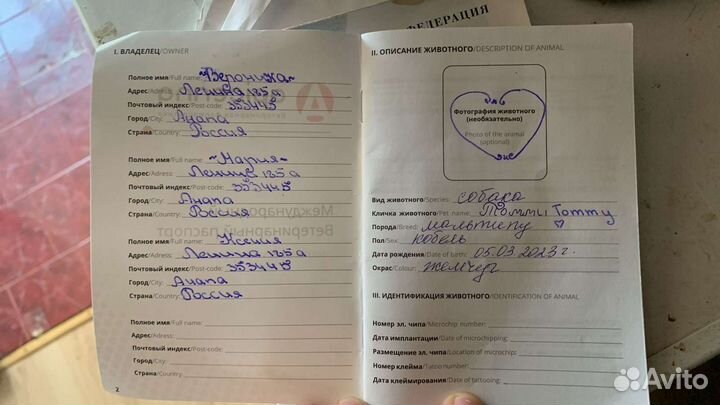 ФЕДЕРАЦИЯ
I. ВЛАДЕЛЕЦ/OWNER
Полное имя/Full name: ~Вероника~
Адрес/Adress: Ленина 185а
Почтовый индекс/Post-code: 353445
Город/City: Анапа
Страна/Country: Россия
Полное имя/Full name: ~Мария~
Адрес/Adress: Ленина 185а
Почтовый индекс/Post-code: 353445
Город/City: Анапа
Страна/Country: Россия
Полное имя/Full name: Ксения
Адрес/Adress: Ленина 185а
Почтовый индекс/Post-code: 353445
Город/City: Анапа
Страна/Country: Россия
Полное имя/Full name:
Адрес/Adress:
Почтовый индекс/Post-code:
Город/City:
Страна/Country:
2
II. ОПИСАНИЕ ЖИВОТНОГО/DESCRIPTION OF ANIMAL
Фотография животного
(необязательно)
Photo of the animal
(optional)
Вид животного/Species: собака
Кличка животного/Pet name: Томми Tommy
Порода/Breed: мальтипу
Пол/Sex: кобель
Дата рождения/Date of birth: 05.03.2023 г.
Окрас/Colour: жемчуг
III. ИДЕНТИФИКАЦИЯ ЖИВОТНОГО/IDENTIFICATION OF ANIMAL
Номер эл. чипа/Microchip number:
Дата имплантации/Date of microchipping:
Размещение эл. чипа/Location of microchip:
Номер клейма/Tattoo number:
Дата клеймирования/Date of tattooing:
Avito